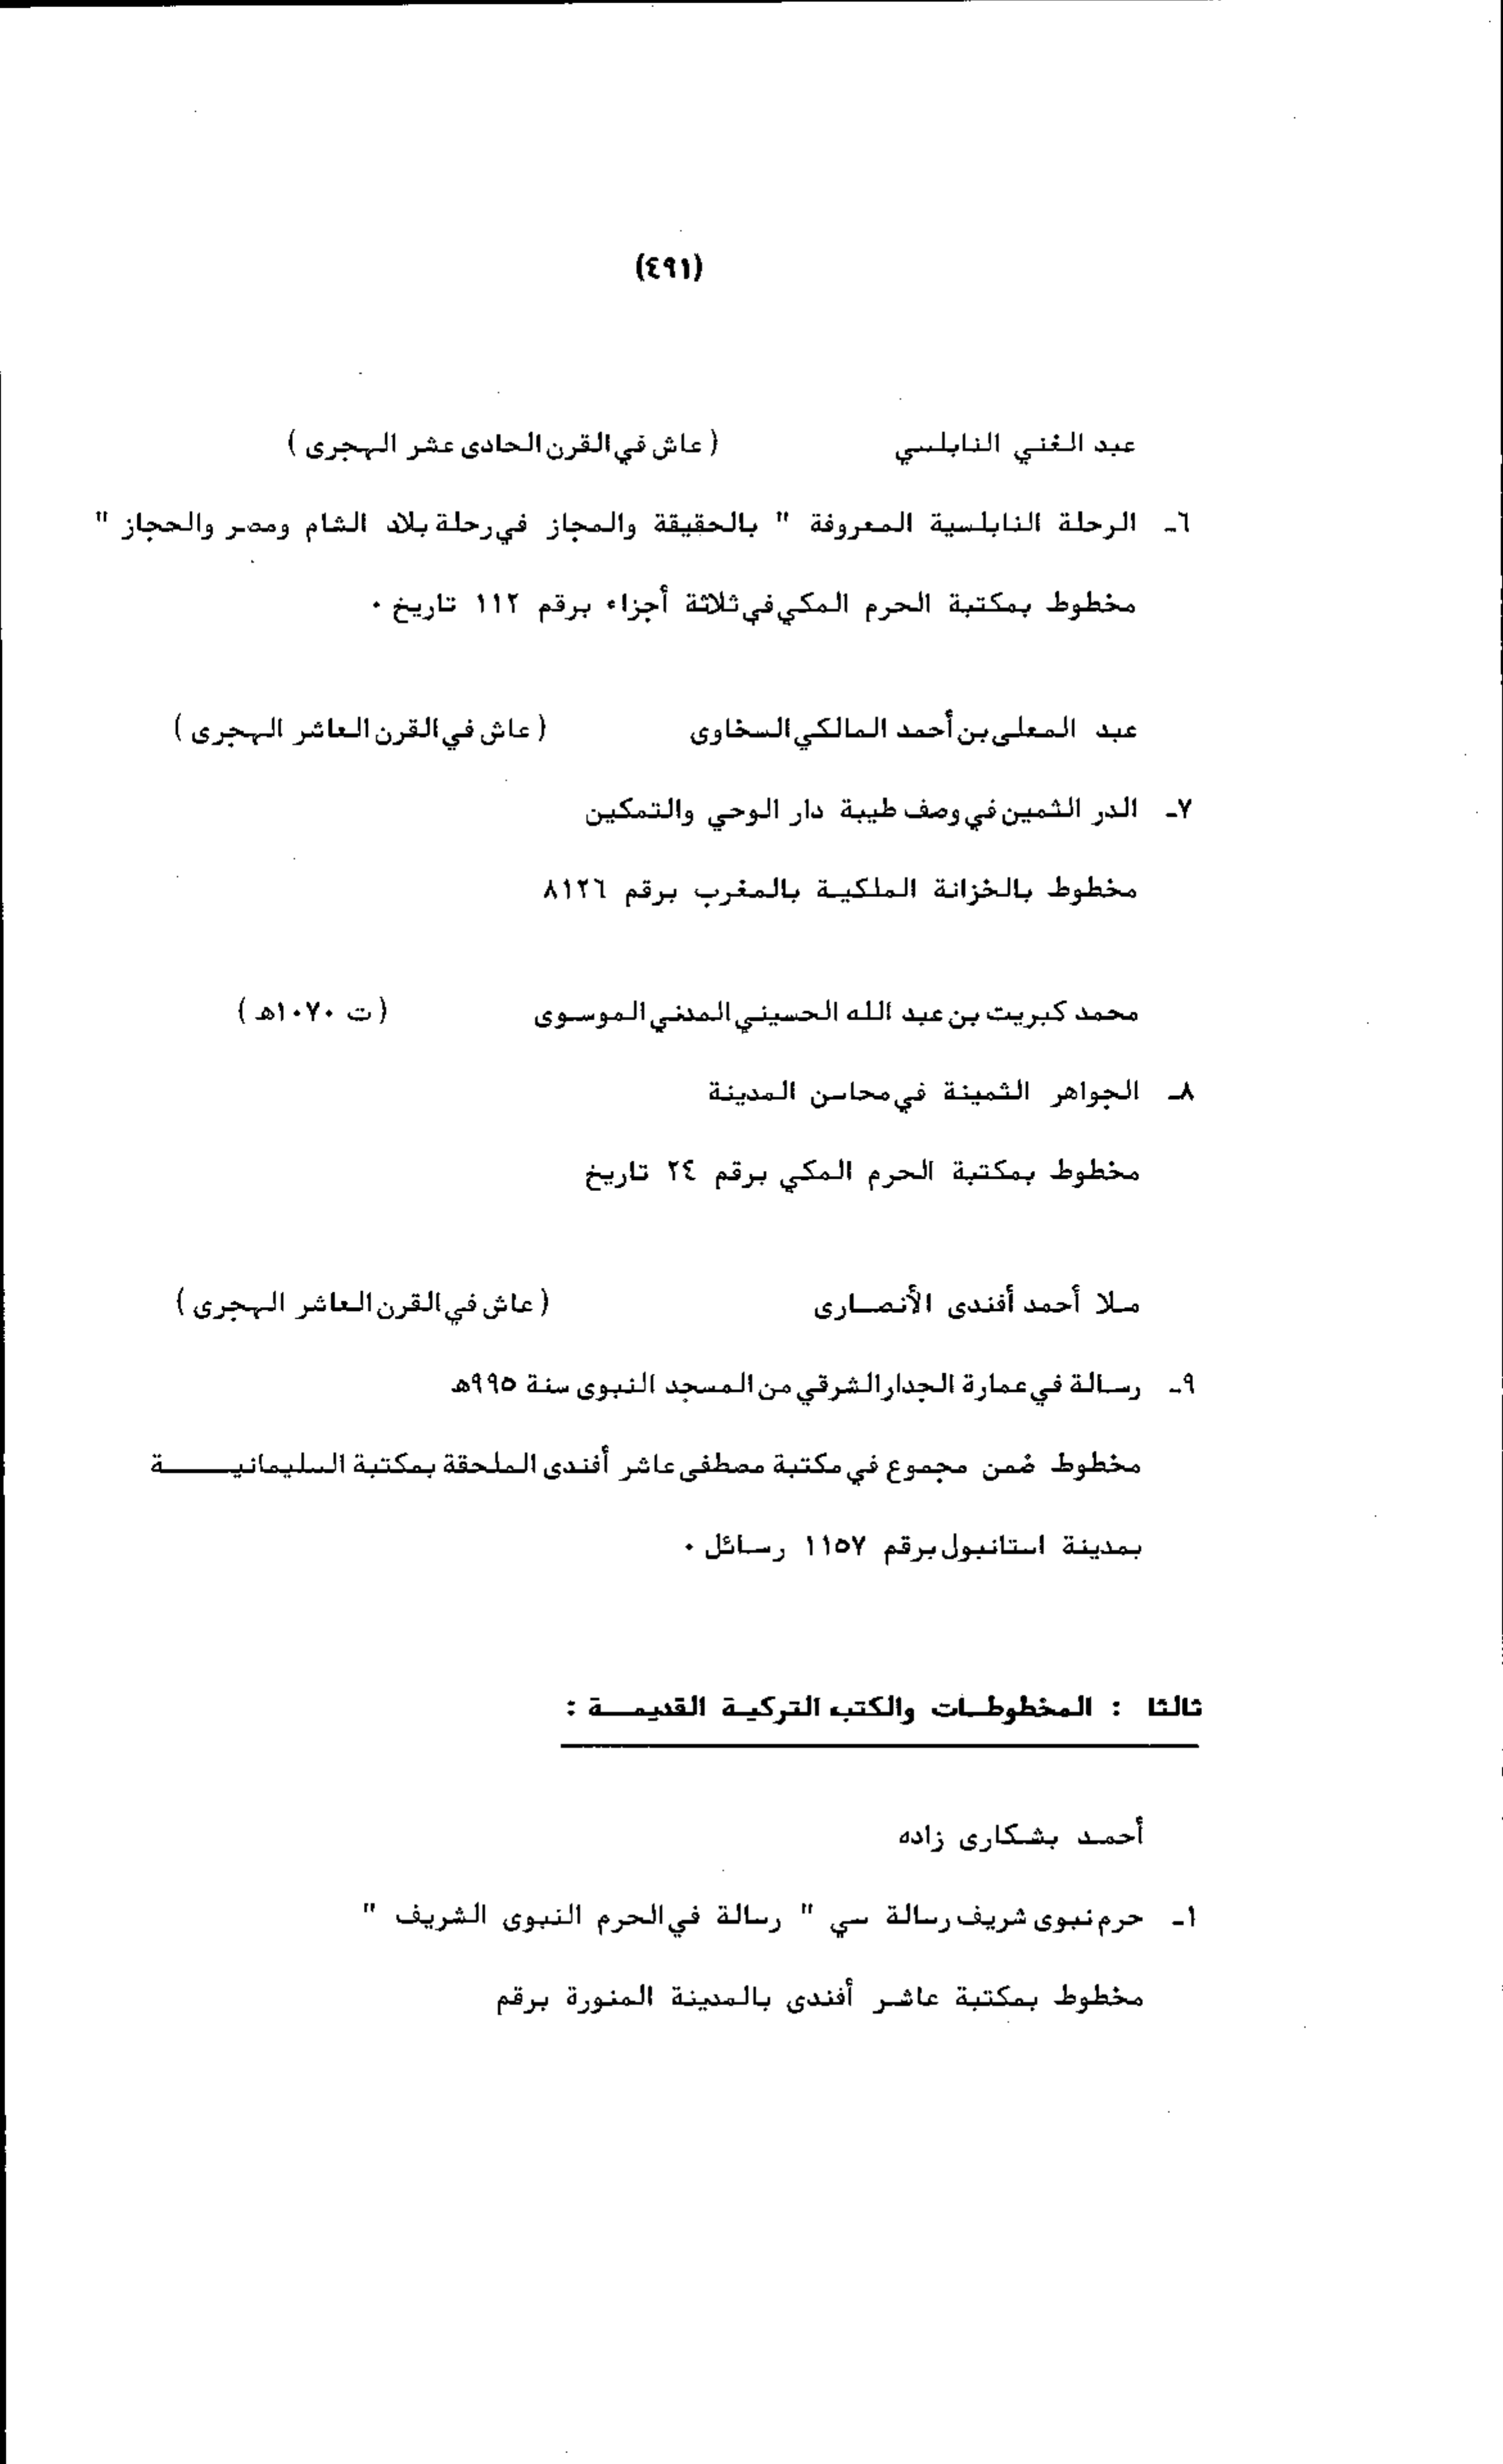 (٤٩١)
عبد الغني النابلسي ( عاش في القرن الحادى عشر الهجرى )
٦ـ الرحلة النابلسية المعروفة " بالحقيقة والمجاز في رحلة بلاد الشام ومصر والحجاز "
مخطوط بمكتبة الحرم المكي في ثلاثة أجزاء برقم ١١٢ تاريخ ٠
عبد المعلى بن أحمد المالكي السخاوى ( عاش في القرن العاشر الهجرى )
٧ـ الدر الثمين في وصف طيبة دار الوحي والتمكين
مخطوط بالخزانة الملكية بالمغرب برقم ٨١٢٦
محمد كبريت بن عبد الله الحسيني المدني الموسوى ( ت ١٠٧٠هـ )
٨ـ الجواهر الثمينة في محاسن المدينة
مخطوط بمكتبة الحرم المكي برقم ٢٤ تاريخ
ملا أحمد أفندى الأنصارى ( عاش في القرن العاشر الهجرى )
٩ـ رسالة في عمارة الجدار الشرقي من المسجد النبوى سنة ٩٩٥هـ
مخطوط ضمن مجموع في مكتبة مصطفى عاشر أفندى الملحقة بمكتبة السليمانيـــــة
بمدينة استانبول برقم ١١٥٧ رسائل ٠
ثالثا : المخطوطـات والكتب التركيـة القديمـــة :
أحمـد بشـكارى زاده
١ـ حرم نبوى شريف رسالة سي " رسالة في الحرم النبوى الشريف "
مخطوط بمكتبة عاشـر أفندى بالمدينة المنورة برقم